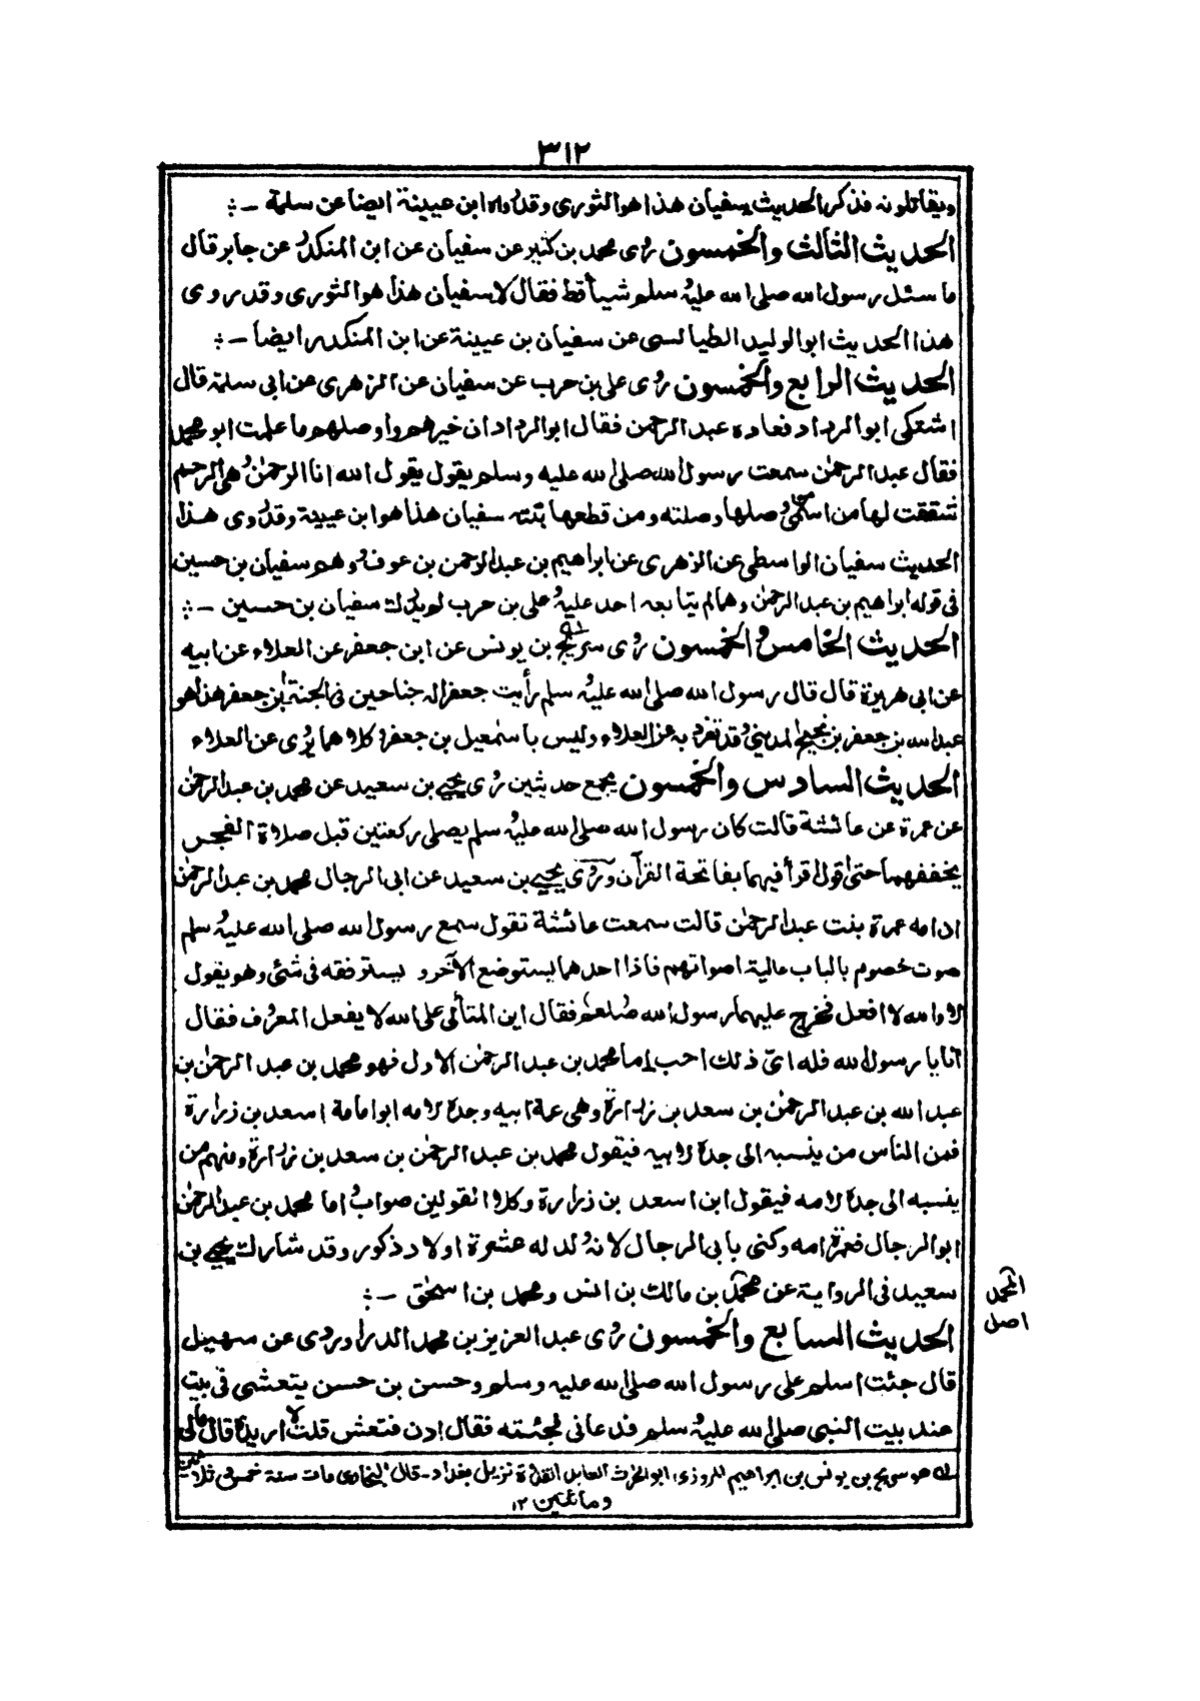 ٣١٢
ويقاتلونه فذكر الحديث سفيان هذا هو الثورى وقد رواه ابن عيينة ايضا عن سلمة -:
الحديث الثالث والخمسون روى محمد بن كثير عن سفيان عن ابن المنكدر عن جابر قال
ما سئل رسول الله صلى الله عليه وسلم شيأ قط فقال لا سفيان هذا هو الثورى وقد روى
هذا الحديث ابو الوليد الطيالسى عن سفيان بن عيينة عن ابن المنكدر ايضا -:
الحديث الرابع والخمسون روى على بن حرب عن سفيان عن الزهرى عن ابى سلمة قال
اشتكى ابو الرداد فعاده عبد الرحمن فقال ابو الرداد ان خيرهم واوصلهم ما علمت ابو محمد
فقال عبد الرحمن سمعت رسول الله صلى الله عليه وسلم يقول يقول الله انا الرحمن وهى الرحم
شققت لها من اسمى من وصلها وصلته ومن قطعها بتته سفيان هذا هو ابن عيينة وقد روى هذا
الحديث سفيان الواسطى عن الزهرى عن ابراهيم بن عبد الرحمن بن عوف ووهم سفيان بن حسين
فى قوله ابراهيم بن عبد الرحمن وهما لم يتابعه احد عليه وعلى بن حرب لم يدرك سفيان بن حسين -:
الحديث الخامس والخمسون روى سريج بن يونس عن ابن جعفر عن العلاء عن ابيه
عن ابى هريرة قال قال رسول الله صلى الله عليه وسلم رأيت جعفرا له جناحين فى الجنة ابن جعفر هذا هو
عبد الله بن جعفر بن نجيح المدينى وقد تفرد به عن العلاء وليس باسمعيل بن جعفر وكلاهما يروى عن العلاء
الحديث السادس والخمسون يجمع حديثين روى يحيى بن سعيد عن محمد بن عبد الرحمن
عن عمرة عن عائشة قالت كان رسول الله صلى الله عليه وسلم يصلى ركعتين قبل صلاة الفجر
يخففهما حتى اقول اقرأ فيهما بفاتحة القرآن وروى يحيى بن سعيد عن ابى الرجال محمد بن عبد الرحمن
ان امه عمرة بنت عبد الرحمن قالت سمعت عائشة تقول سمع رسول الله صلى الله عليه وسلم
صوت خصوم بالباب عالية اصواتهم فاذا احدهما يستوضع الآخر و يسترفقه فى شئ وهو يقول
لا والله لا افعل فخرج عليهما رسول الله صلعم فقال اين المتألى على الله لا يفعل المعروف فقال
انا يا رسول الله فله اىّ ذلك احب اما محمد بن عبد الرحمن الاول فهو محمد بن عبد الرحمن بن
عبد الله بن عبد الرحمن بن سعد بن زرارة وهى عمة ابيه وجده لامه ابو امامة اسعد بن زرارة
فمن الناس من ينسبه الى جده لابيه فيقول محمد بن عبد الرحمن بن سعد بن زرارة ومنهم من
ينسبه الى جده لامه فيقول ابن اسعد بن زرارة وكلا القولين صواب واما محمد بن عبد الرحمن
ابو الرجال فعمرة امه وكنى بابى الرجال لانه ولد له عشرة اولاد ذكور وقد شارك يحيى بن
سعيد فى الرواية عن محمد بن مالك بن انس ومحمد بن اسحق -:
المحمد
اصل
الحديث السابع والخمسون روى عبد العزيز بن محمد الدراوردى عن سهيل
قال جئت اسلم على رسول الله صلى الله عليه وسلم وحسن بن حسن يتعشى فى بيت
عند بيت النبى صلى الله عليه وسلم فدعانى فجئته فقال ادن فتعش قلت لا اريده قال مالى
له هو سريج بن يونس بن ابراهيم المروزى ابو الحرث العابد القداة نزيل بغداد - قال البخارى مات سنة خمس وثلاثين
ومائتين ١٢